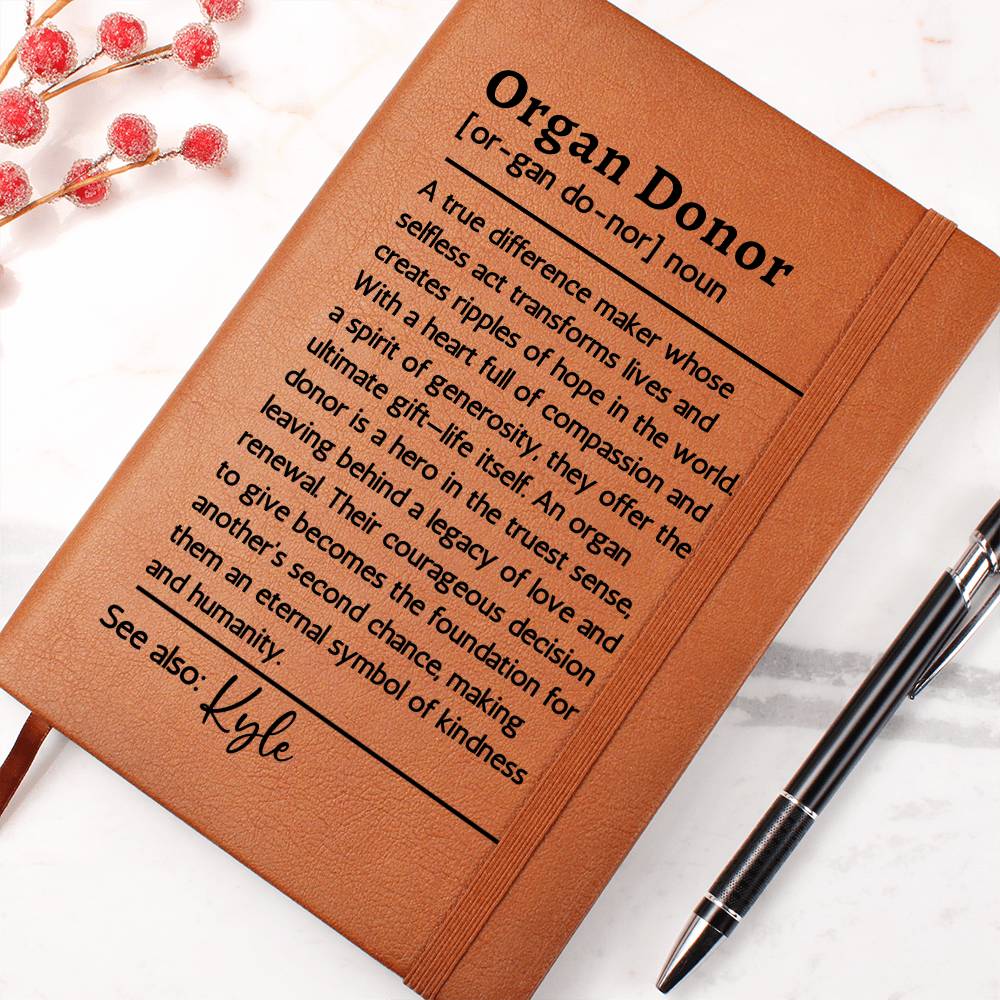 Organ Donor
[or-gan do-nor] noun
A true difference maker whose
selfless act transforms lives and
creates ripples of hope in the world.
With a heart full of compassion and
a spirit of generosity, they offer the
ultimate gift—life itself. An organ
donor is a hero in the truest sense,
leaving behind a legacy of love and
renewal. Their courageous decision
to give becomes the foundation for
another's second chance, making
them an eternal symbol of kindness
and humanity.
See also: Kyle